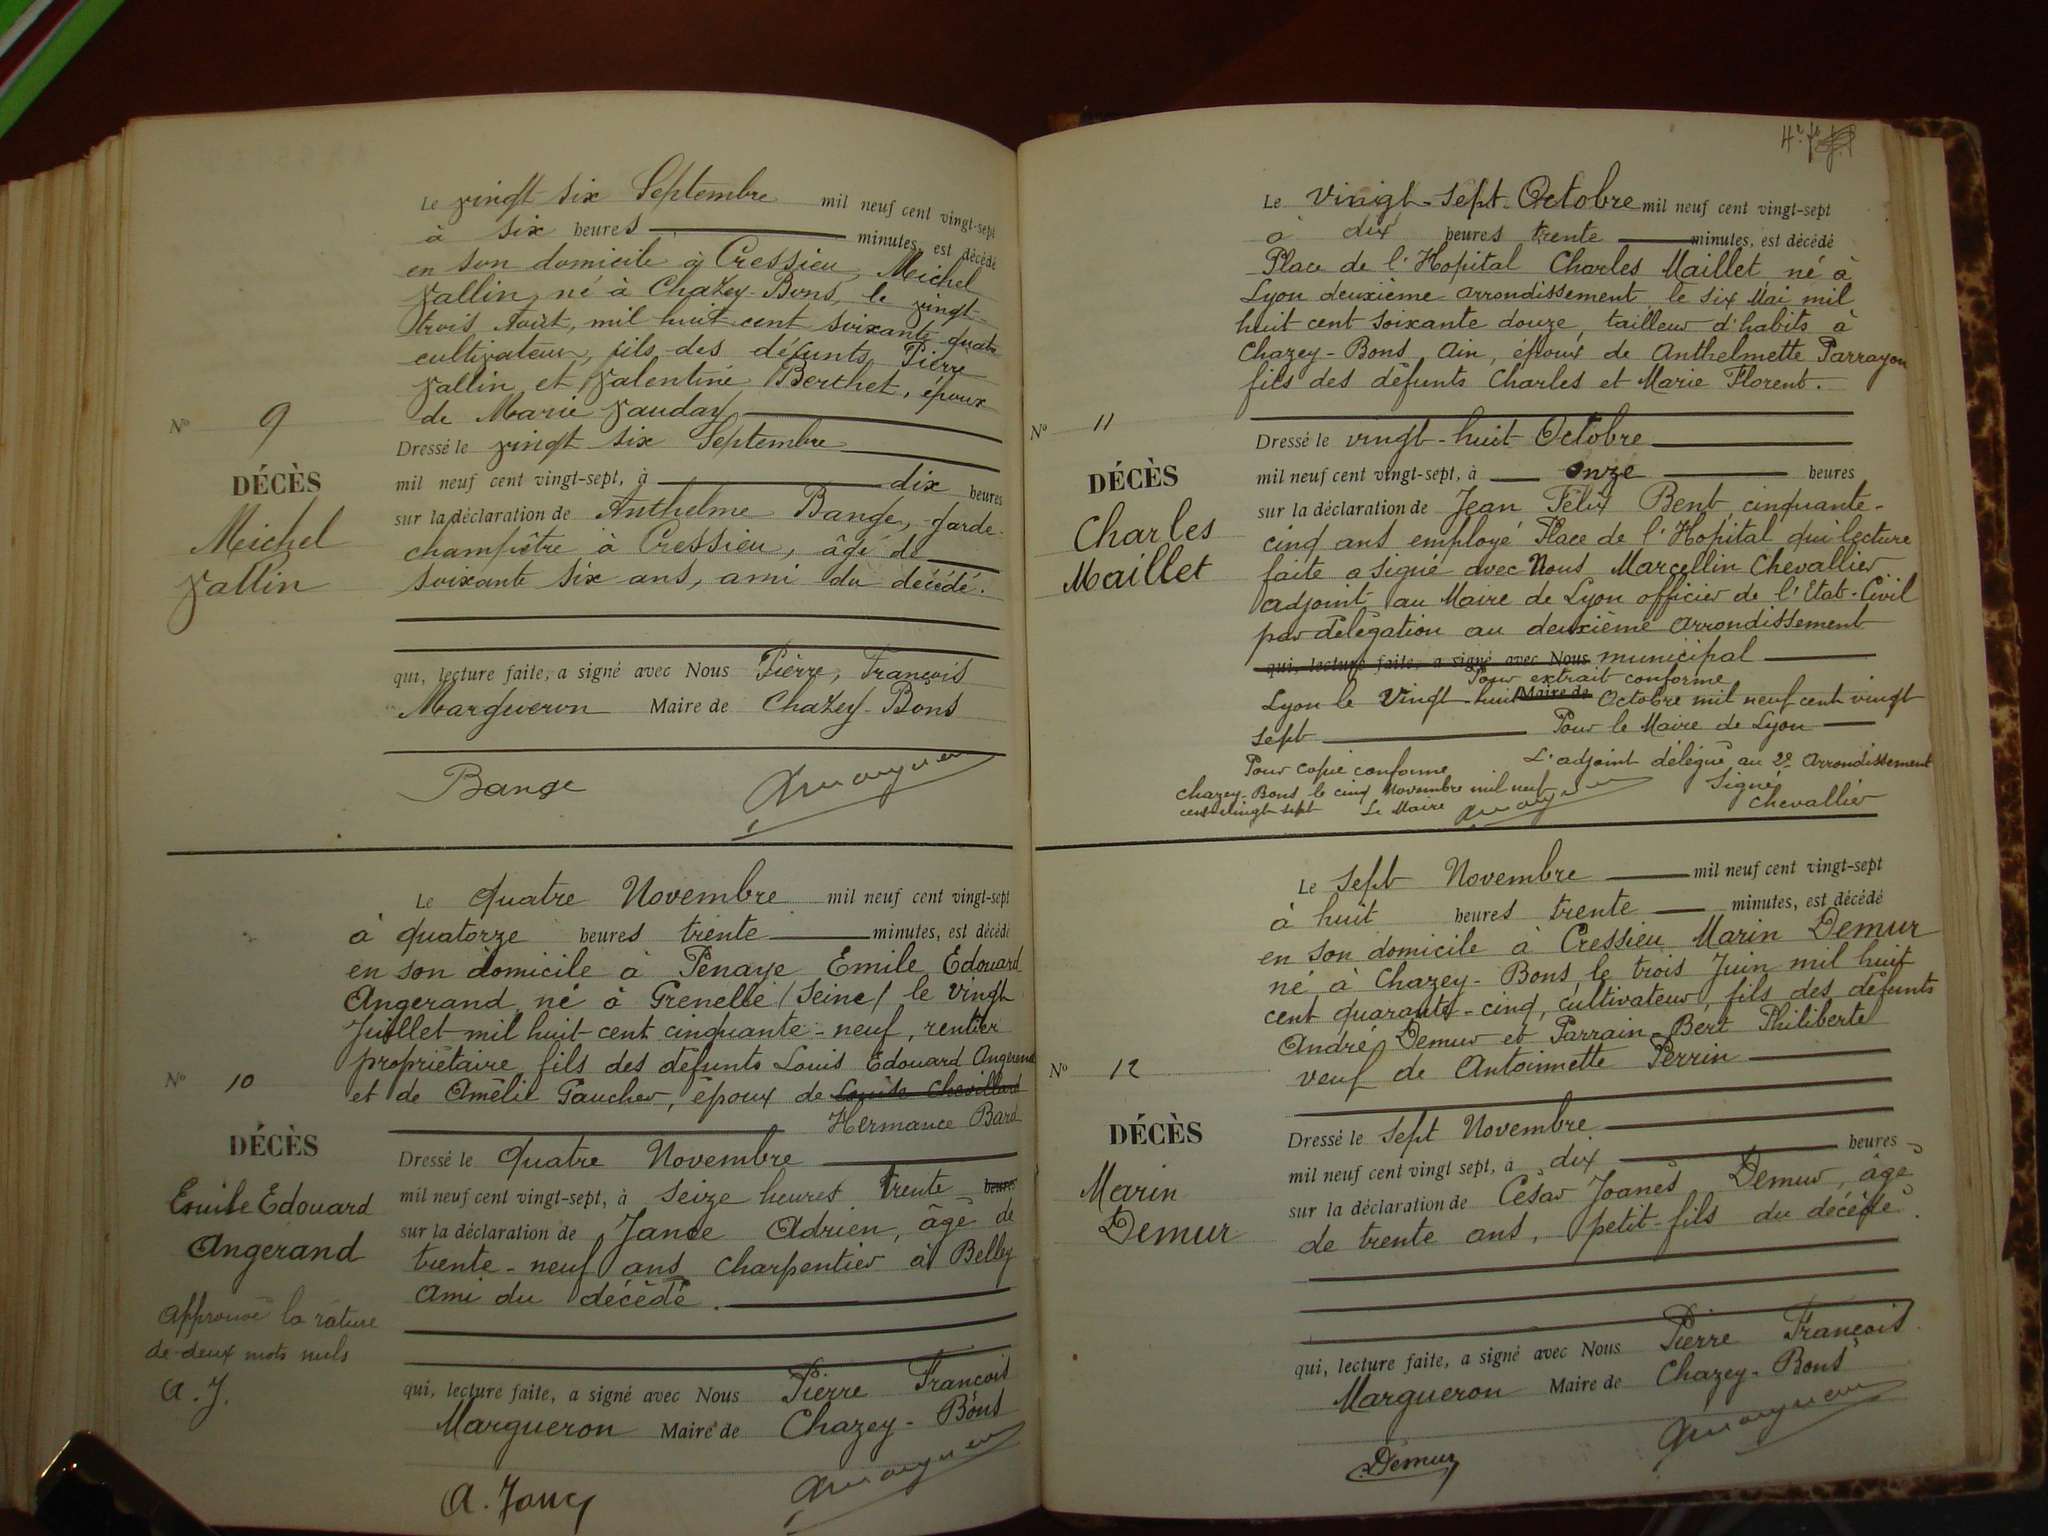 Le vingt six Septembre mil neuf cent vingt-sept
à six heures minutes, est décédé
en son domicile à Cressieu, Michel
Vallin, né à Chazey-Bons, le vingt-
trois Août, mil huit cent soixante quatre
cultivateur, fils des défunts Pierre
Vallin et Valentine Berthet, époux
de Marie Vauday
N° 9
Dressé le vingt six Septembre
DÉCÈS
mil neuf cent vingt-sept, à dix heures
Michel
Vallin
sur la déclaration de Anthelme Bange, garde-
champêtre à Cressieu, âgé de
soixante six ans, ami du décédé.
qui, lecture faite, a signé avec Nous Pierre, François
Margueron Maire de Chazey-Bons
Bange
Le quatre Novembre mil neuf cent vingt-sept
à quatorze heures trente minutes, est décédé
en son domicile à Penaye Emile Edouard
Angerand, né à Grenelle (Seine) le vingt
Juillet mil huit-cent cinquante-neuf, rentier
propriétaire fils des défunts Louis Edouard Angerand
N° 10
et de Amélie Gaucher, époux de Louise Chevillard
Hermance Bard
DÉCÈS
Emile Edouard
Angerand
Dressé le quatre Novembre
mil neuf cent vingt-sept, à seize heures trente heures
sur la déclaration de Adrien, âgé de
trente-neuf ans charpentier à Belley
Ami du décédé.
Approuvé la rature
de deux mots nuls
A. J.
qui, lecture faite, a signé avec Nous Pierre François
Margueron Maire de Chazey-Bons
Le vingt-sept Octobre mil neuf cent vingt-sept
à dix heures trente minutes, est décédé
Place de l'Hopital Charles Maillet né à
Lyon deuxième arrondissement le six Mai mil
huit cent soixante douze, tailleur d'habits à
Chazey-Bons Ain, époux de Anthelmette Parrayon
fils des défunts Charles et Marie Florent.
N° 11
Dressé le vingt-huit Octobre
DÉCÈS
Charles
Maillet
mil neuf cent vingt-sept, à onze heures
sur la déclaration de Jean Félix Bent, cinquante-
cinq ans employé Place de l'Hopital qui lecture
faite a signé avec Nous Marcellin Chevallier
adjoint au Maire de Lyon officier de l'Etat-Civil
par délégation au deuxième arrondissement
qui, lecture faite, a signé avec Nous municipal
Pour extrait conforme
Lyon le Vingt-huit Maire de Octobre mil neuf cent vingt
sept Pour le Maire de Lyon
L'adjoint délégué au 2e Arrondissement
Signé
Chevallier
Pour copie conforme
Chazey-Bons le cinq Novembre mil neuf
cent vingt sept Le Maire
Le sept Novembre mil neuf cent vingt-sept
à huit heures trente minutes, est décédé
en son domicile à Cressieu Marin Demur
né à Chazey-Bons le trois Juin mil huit
cent quarante-cinq, cultivateur, fils des défunts
André Demur et Parrain-Bert Philiberte
veuf de Antoinette Perrin
N° 12
DÉCÈS
Marin
Demur
Dressé le sept Novembre
mil neuf cent vingt sept, à dix heures
sur la déclaration de César Joanès Demur, âgé
de trente ans, petit-fils du décédé.
qui, lecture faite, a signé avec Nous Pierre François
Margueron Maire de Chazey-Bons
Demur